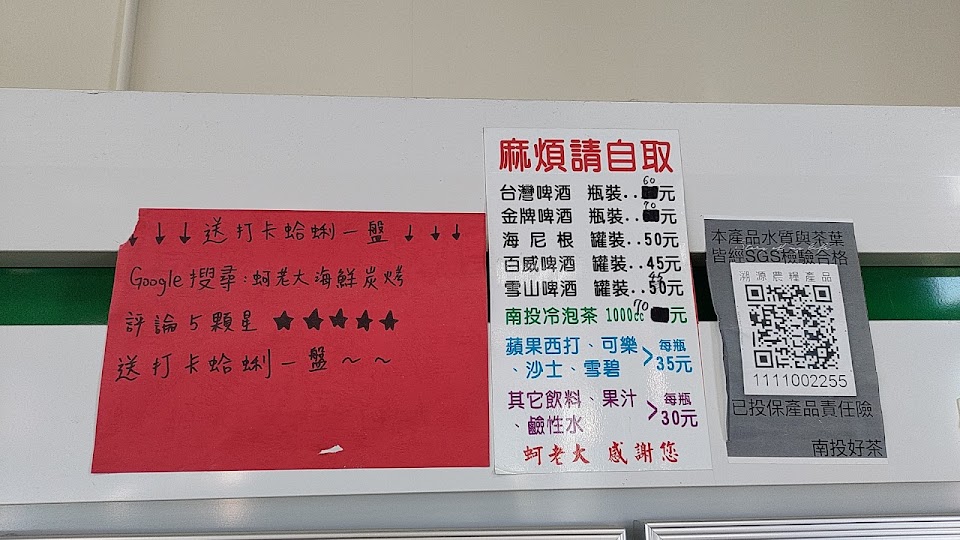 ↓ ↓ ↓ 送打卡蛤蜊一盤 ↓ ↓ ↓
Google搜尋:蚵老大海鮮炭烤
評論5顆星 ★★★★★
送打卡蛤蜊一盤～～
麻煩請自取
台灣啤酒 瓶裝..60元
金牌啤酒 瓶裝..70元
海尼根 罐裝..50元
百威啤酒 罐裝..45元
雪山啤酒 罐裝..50元
南投冷泡茶 1000cc 70元
蘋果西打、可樂
、沙士、雪碧
>每瓶
35元
其它飲料、果汁
、鹼性水
>每瓶
30元
蚵老大 感謝您
本產品水質與茶葉
皆經SGS檢驗合格
溯源農糧產品
1111002255
已投保產品責任險
南投好茶